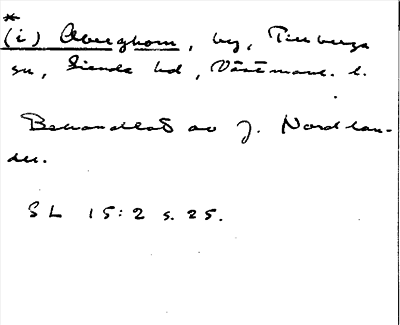 *
(i) Aberghom, by, Tillberga
sn, Siende hd, Västmanl. l.
Behandlat av J. Nordlan-
der.
SL 15:2 s. 25.